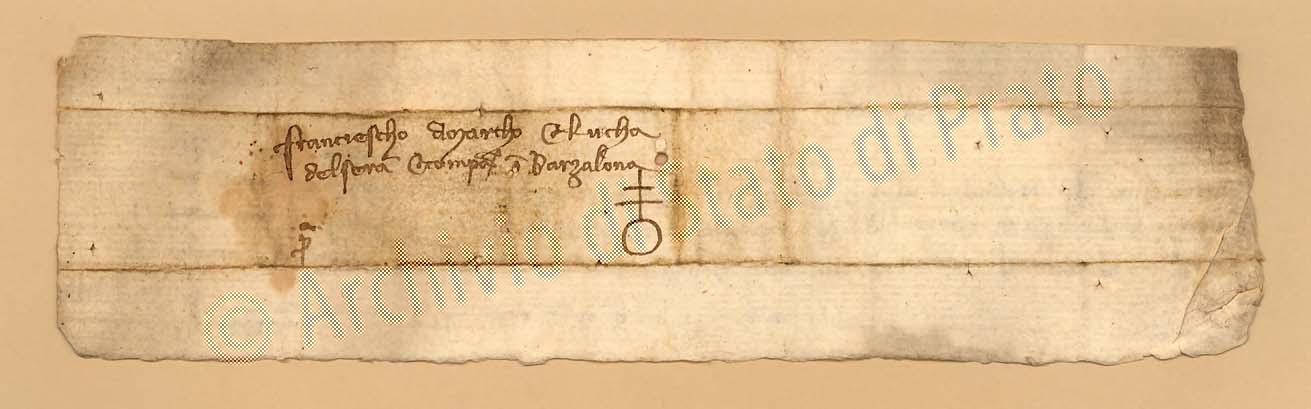 Franciescho di Marcho e Lucha
del Sera e comp. in Barzalona
p a
© Archivio di Stato di Prato